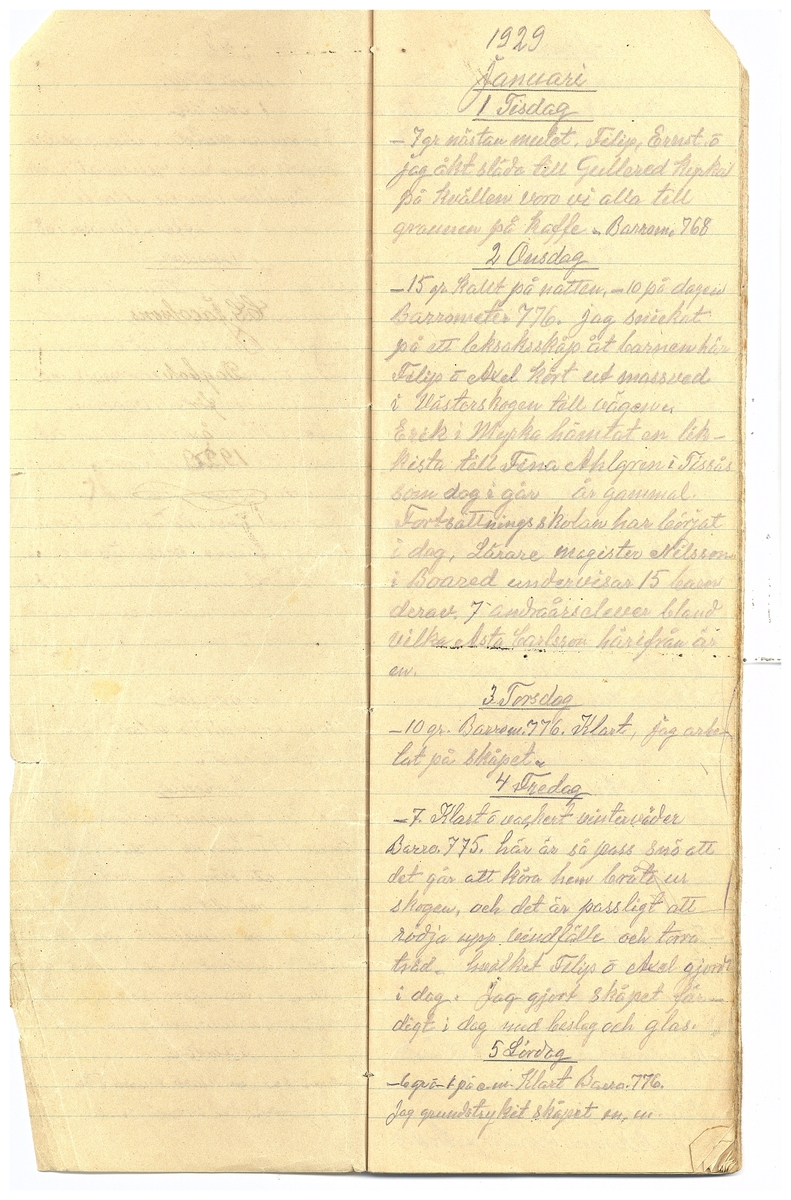 1929
Januari
1 Tisdag
-7 gr nästan mulet. Filip, Ernst o
jag åkt släda till Gullered
på kvällen voro vi alla till
grannen på kaffe. Barrom. 768
2 Onsdag
-15 gr. kallt på natten, -10 på dagen
Barrometer 776. jag snickat
på ett leksaksskåp åt barnen här
Filip o Axel kört ut massved
i Västerskogen till vägen.
Erik i hämtat en lik-
kista till Tina Ahlgren i Tissås
som dog i går år gammal.
Fortsättningsskolan har börjat
i dag, Lärare magister Nilsson
i Boared undervisar 15 barn
derav. 7 andraårselever bland
vilka Asta Carlsson härifrån är
en.
3 Torsdag
-10 gr. Barrom. 776. Klart, jag arbe-
tat på skåpet.
4 Fredag
-7. Klart o vackert vinterväder
Barro. 775. här är så pass snö att
det går att köra hem bråte ur
skogen, och det är passligt att
rödja upp vindfälle och torra
träd. hvilket Filip o Axel gjort
i dag. Jag gjort skåpet fär-
digt i dag med beslag och glas.
5 Lördag
på e.m. Klart Barro. 776.
Jag grundstrykit skåpet m, m
C.G. Jacobsons
Dagbok
för
år
1929